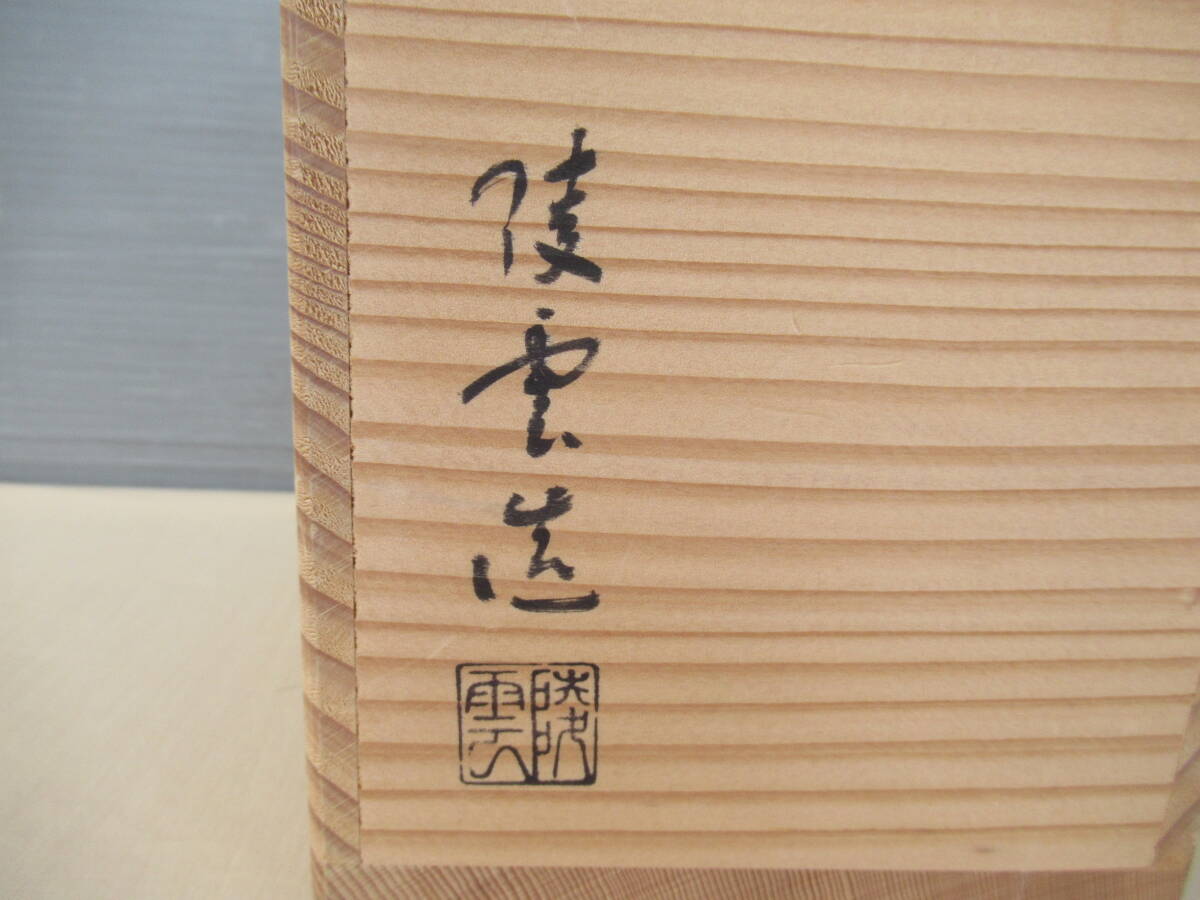 陵雲造
陵雲